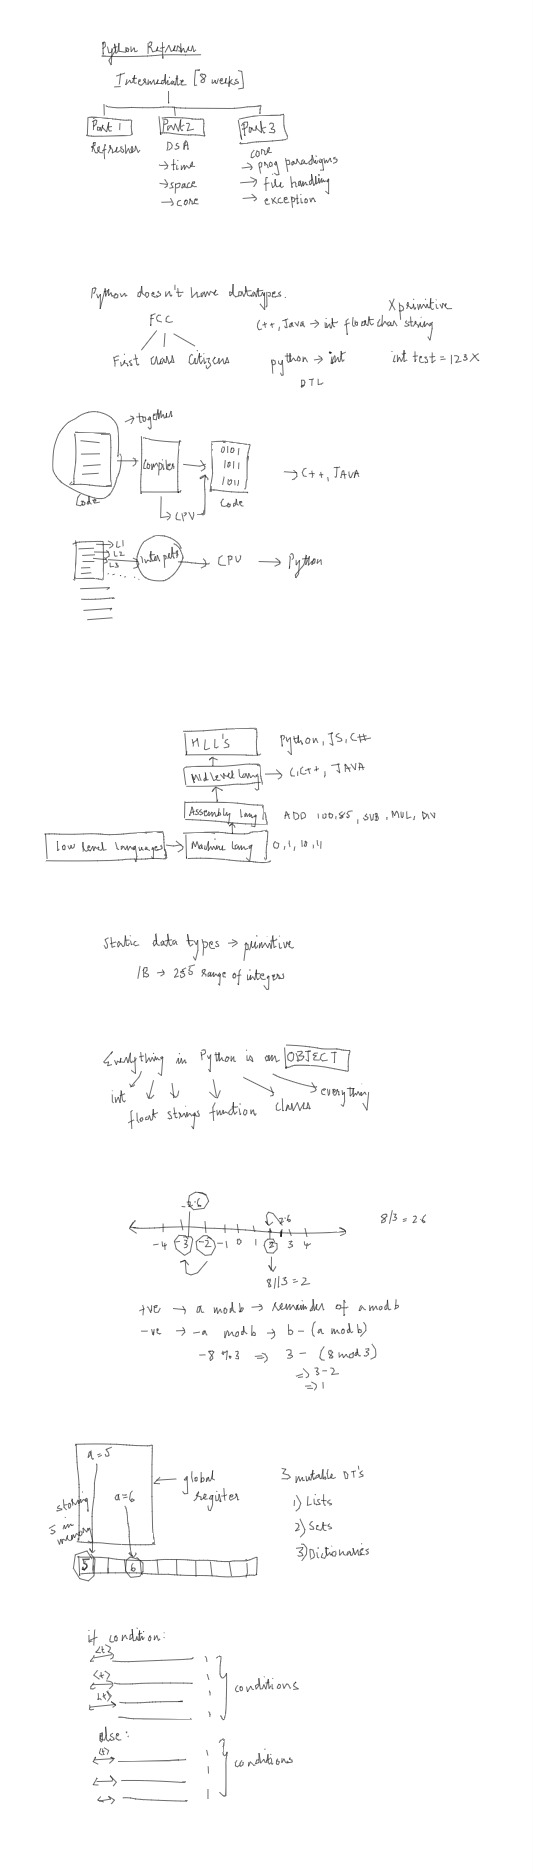 Python Refresher
Intermediate [8 weeks]
Part 1 Part 2 Part 3
Refresher DSA core
→ time → prog paradigms
→ space → file handling
→ core → exception
Python doesn't have datatypes.
FCC
First class Citizens
X primitive
C++, Java → int float char string
python → int int test = 123 X
DTL
→ together
Compiler
0101
1011
1011
→ C++, JAVA
Code
CPU
Code
→ L1
→ L2
→ L3
.....
Interpets → CPU → Python
HLL's Python, JS, C#
Mid level lang → C, C++, JAVA
Assembly lang ADD 100,85, SUB, MUL, DIV
Low level languages → Machine lang 0,1,10,11
Static data types → primitive
1B → 255 range of integers
Everything in Python is an OBJECT
int float strings function classes everything
-2.6
2.6 8/3 = 2.6
-4 -3 -2 -1 0 1 2 3 4
8//3 = 2
+ve → a mod b → remainder of a mod b
-ve → -a mod b → b - (a mod b)
-8 % 3 => 3 - (8 mod 3)
=> 3-2
=> 1
a = 5
a=6
storing
5 in
memory
global
register
3 mutable DT's
1) Lists
2) Sets
3) Dictionaries
5 6
if condition:
<t>
<t>
<t>
conditions
else:
<t>
conditions